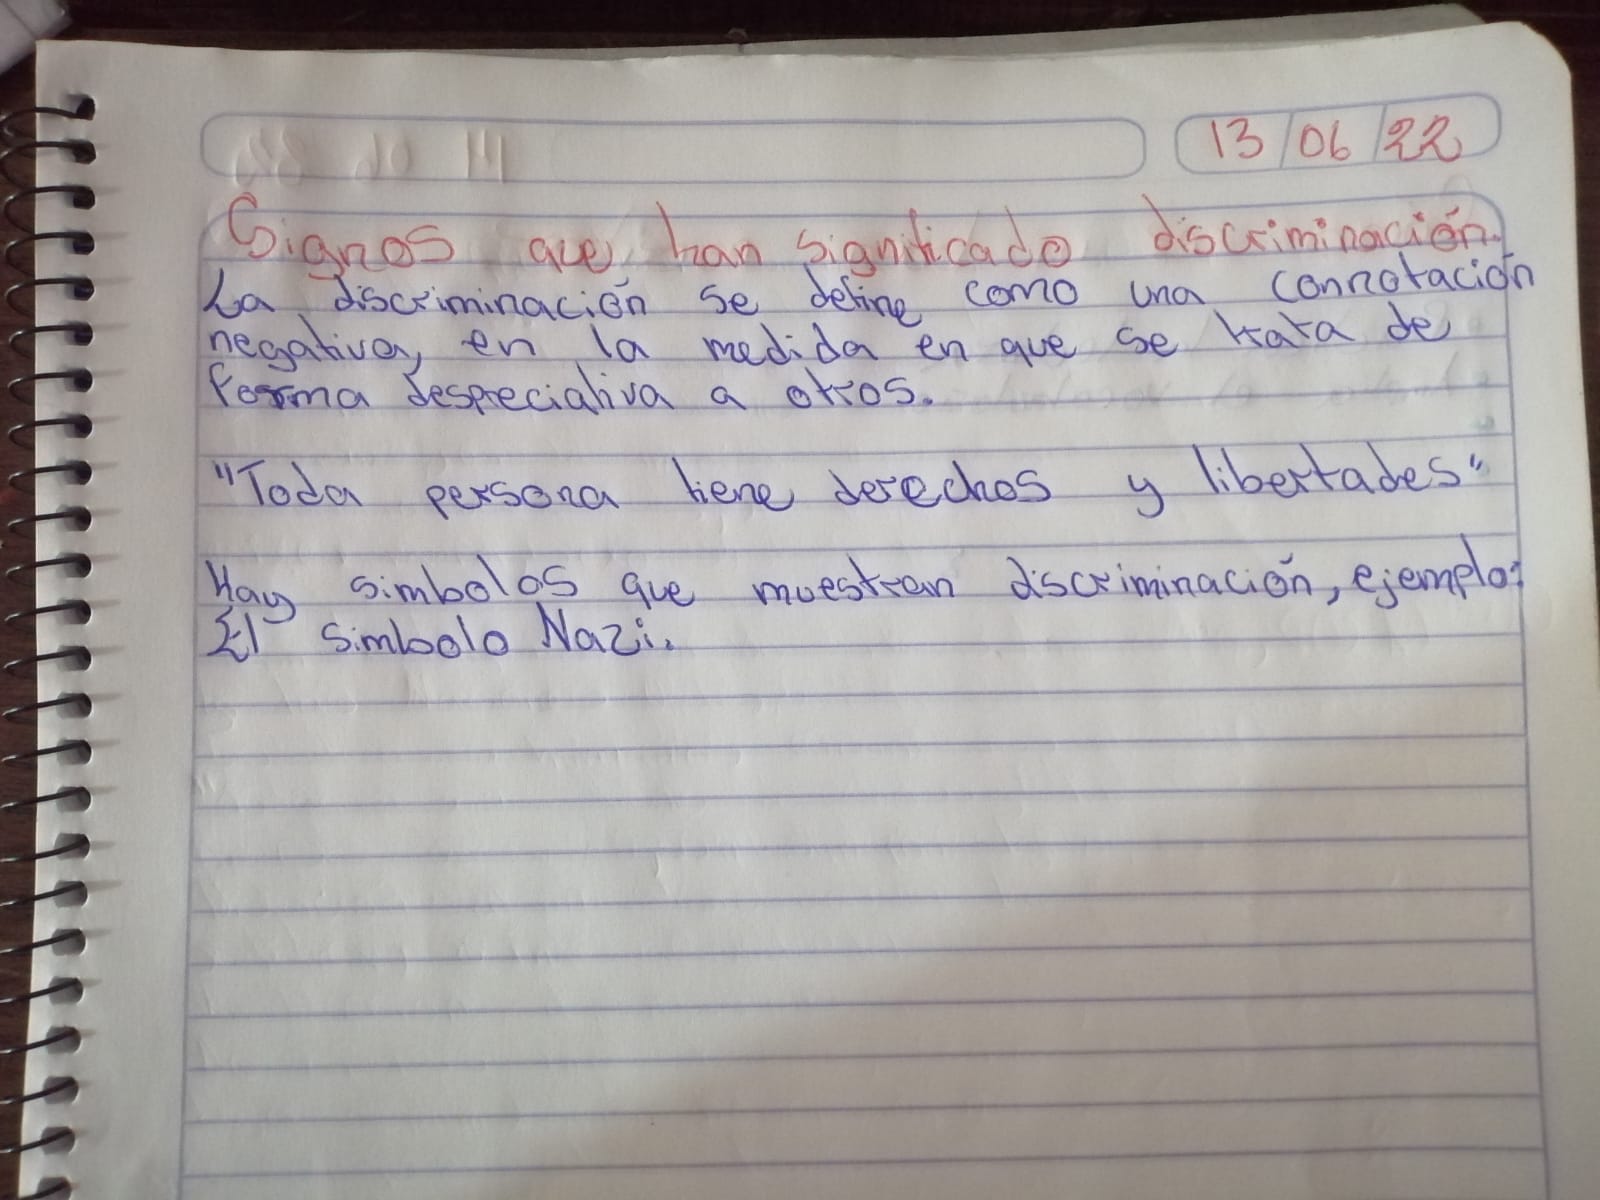 13/06/22
Signos que han significado discriminación.
La discriminación se define como una connotación
negativa, en la medida en que se trata de
forma despreciativa a otros.
"Toda persona tiene derechos y libertades"
Hay simbolos que muestran discriminación, ejemplo:
El simbolo Nazi.